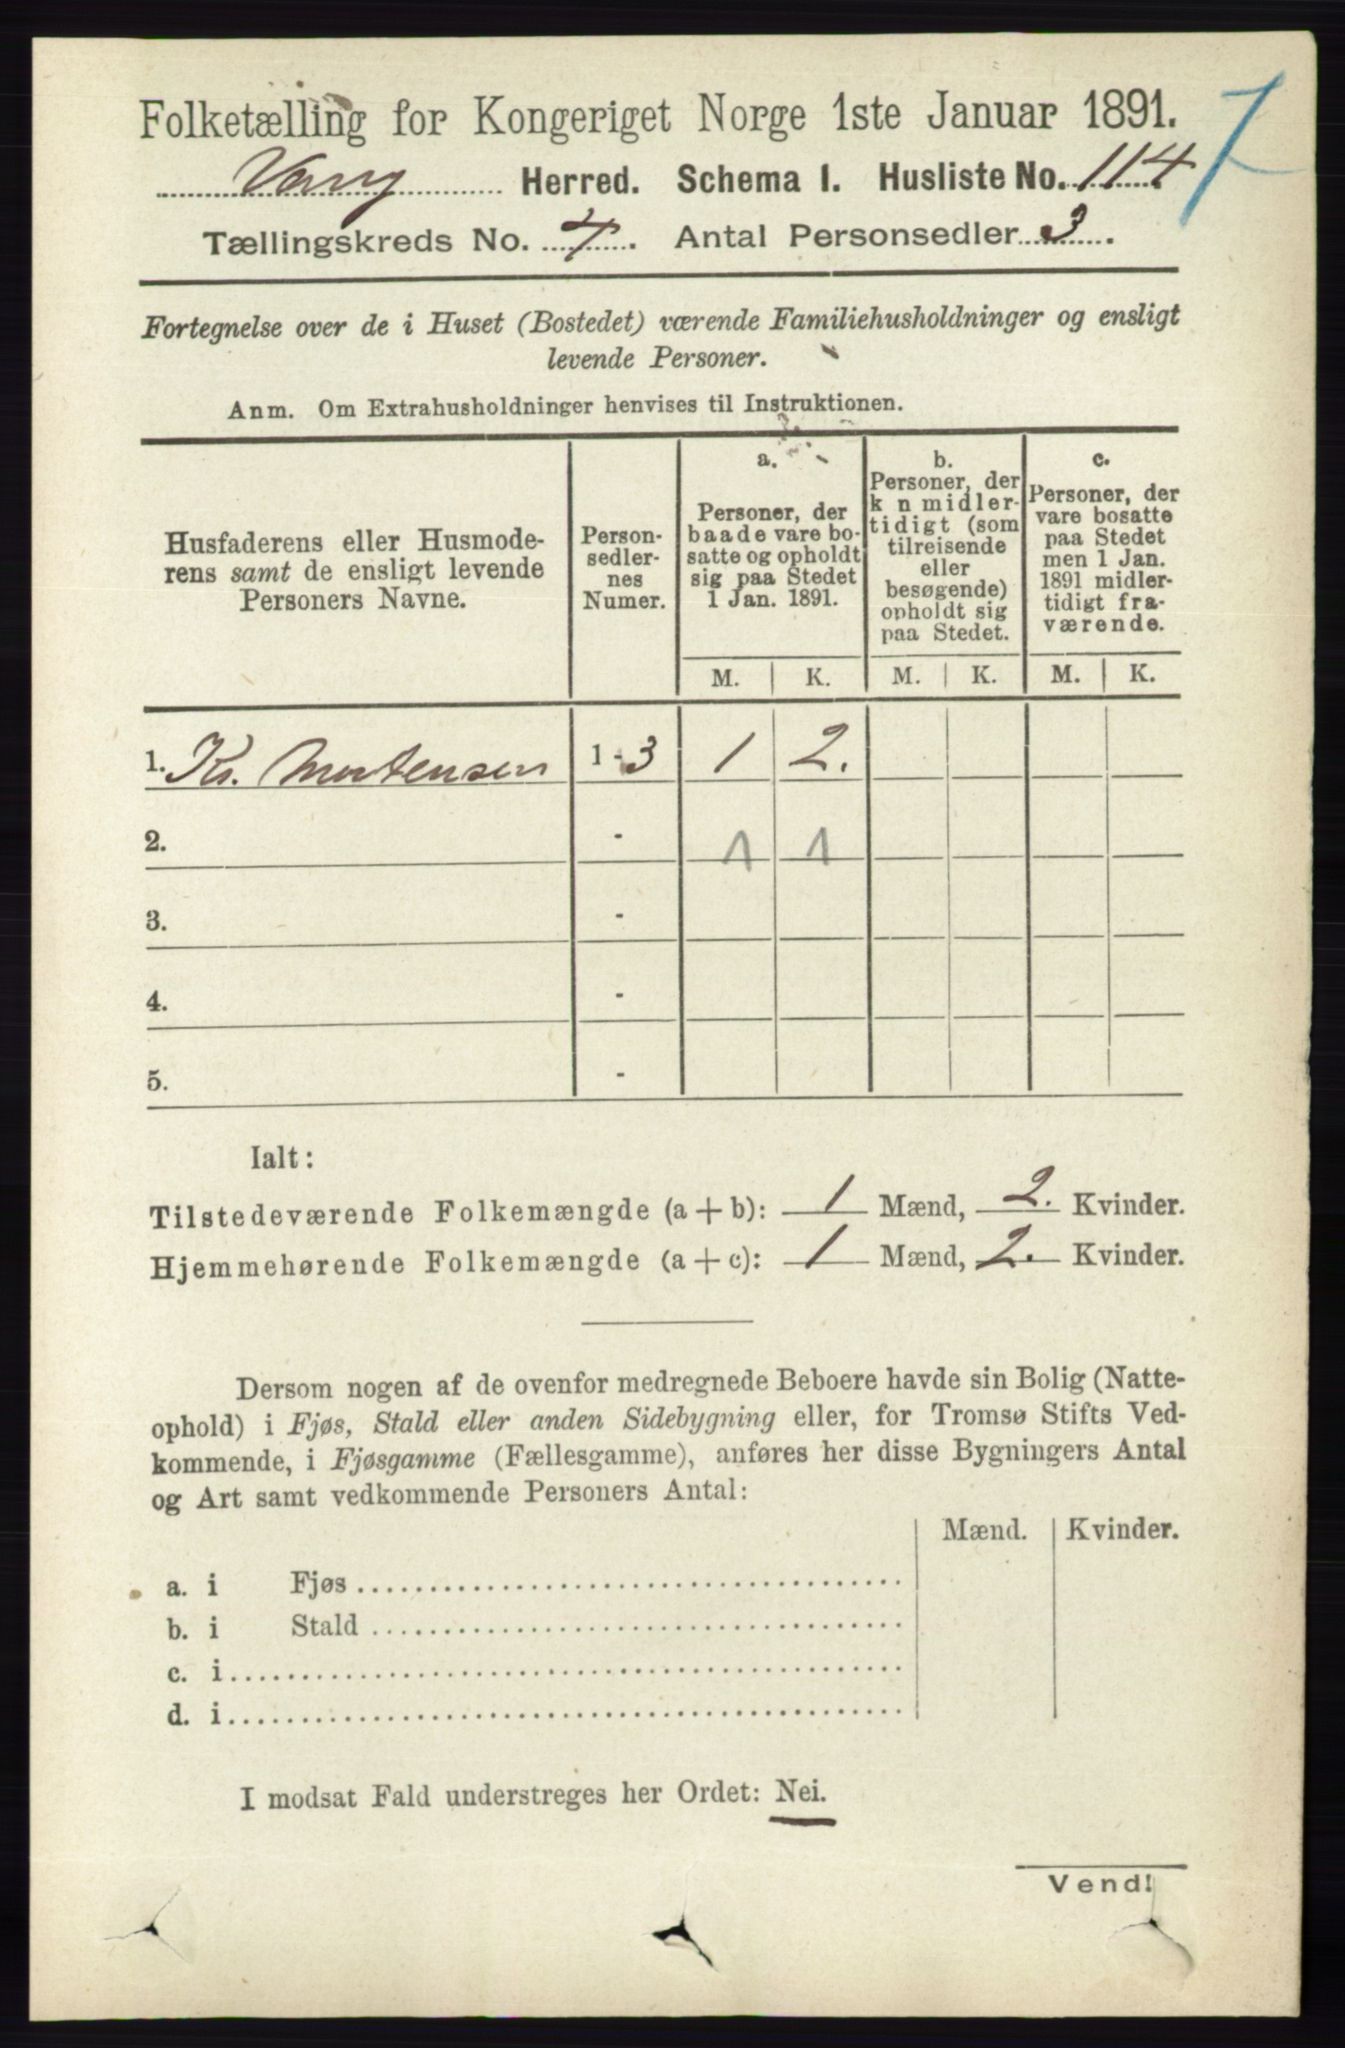 Folketælling for Kongeriget Norge 1ste Januar 1891.
7
Vang Herred. Schema I. Husliste No. 114
Tællingskreds No. 4. Antal Personsedler 3.
Fortegnelse over de i Huset (Bostedet) værende Familiehusholdninger og ensligt
levende Personer.
Anm. Om Extrahusholdninger henvises til Instruktionen.
Husfaderens eller Husmode-
rens samt de ensligt levende
Personers Navne.
Person-
sedler-
nes
Numer.
a.
Personer, der
baade vare bo-
satte og opholdt
sig paa Stedet
1 Jan. 1891.
b.
Personer, der
k n midler-
tidigt (som
tilreisende
eller
besøgende)
opholdt sig
paa Stedet.
c.
Personer, der
vare bosatte
paa Stedet
men 1 Jan.
1891 midler-
tidigt fra-
værende.
M. K. M. K. M. K.
1. Kr. Mortensen 1-3 1 2.
2. - 1 1
3. -
4. -
5. -
Ialt:
Tilstedeværende Folkemængde (a+b): 1 Mænd, 2. Kvinder.
Hjemmehørende Folkemængde (a+c): 1 Mænd, 2. Kvinder.
Dersom nogen af de ovenfor medregnede Beboere havde sin Bolig (Natte-
ophold) i Fjøs, Stald eller anden Sidebygning eller, for Tromsø Stifts Ved-
kommende, i Fjøsgamme (Fællesgamme), anføres her disse Bygningers Antal
og Art samt vedkommende Personers Antal:
Mænd. Kvinder.
a. i Fjøs
b. i Stald
c. i
d. i
I modsat Fald understreges her Ordet: Nei.
Vend!